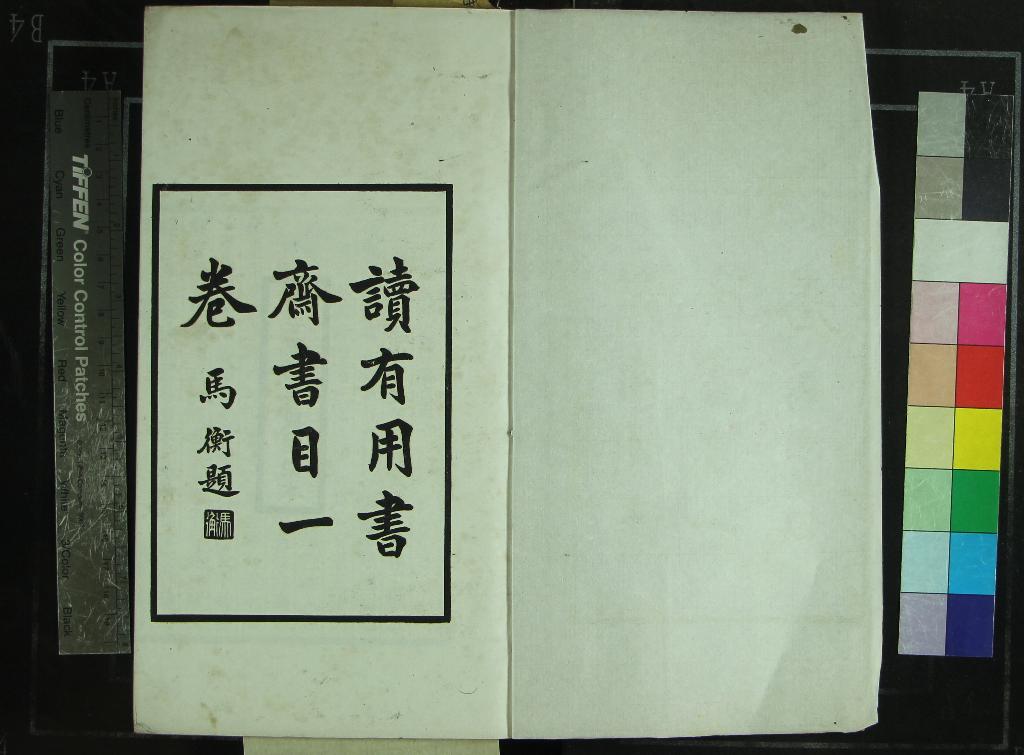 讀有用書
齋書目一
卷
馬衡題
馬衡
TIFFEN Color Control Patches
Blue Cyan Green Yellow Red Magenta White 3/Color Black
Centimetres
B4
A4
A4